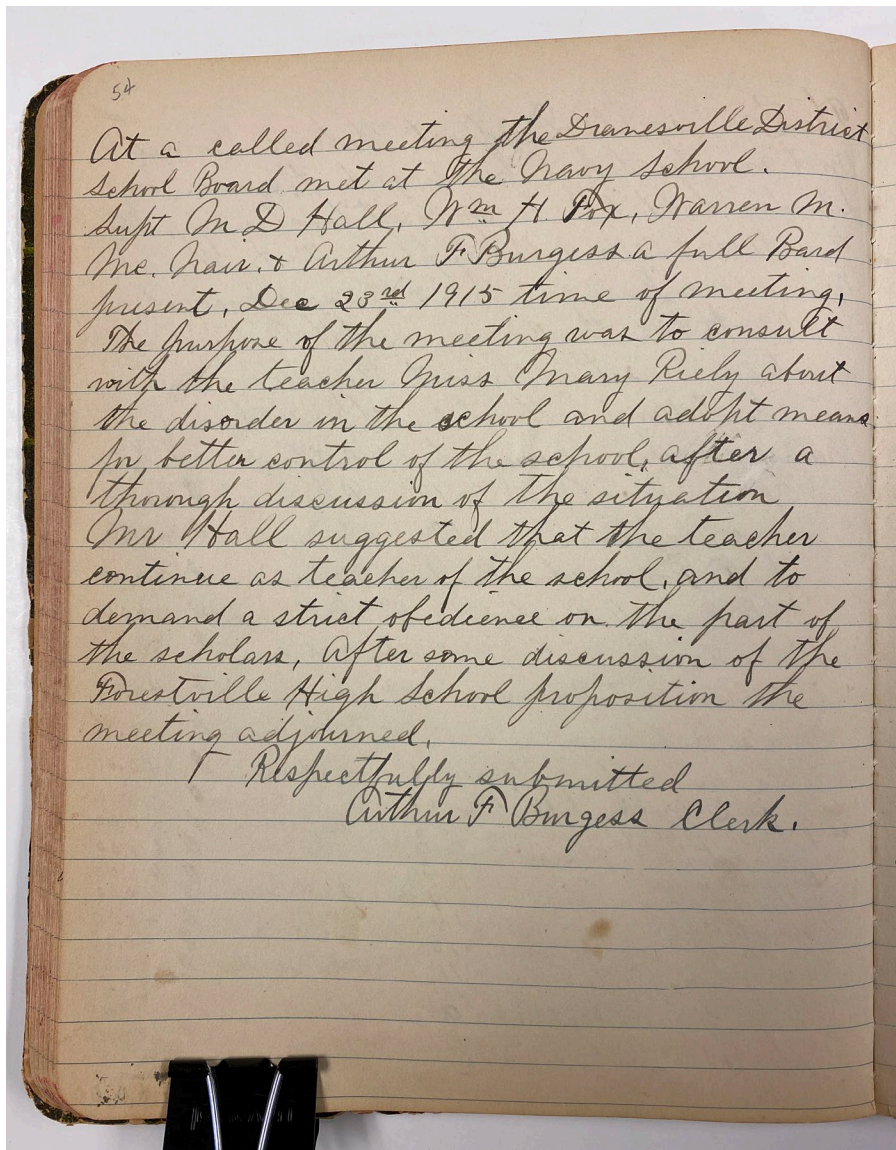 54
At a called meeting the Dranesville District
School Board met at the Navy School.
Supt M D Hall, Wm H. Fox, Warren M.
Mc. Nair. & Arthur F Burgess a full Bard
present, Dec 23rd 1915 time of meeting.
The purpose of the meeting was to consult
with the teacher Miss Mary Riely about
the disorder in the school and adopt means
for better control of the school, after a
thorough discussion of the situation
Mr Hall suggested that the teacher
continue as teacher of the school, and to
demand a strict obedience on the part of
the scholars, After some discussion of the
Forestville High School proposition the
meeting adjourned.
Respectfully submitted
Arthur F Burgess Clerk.